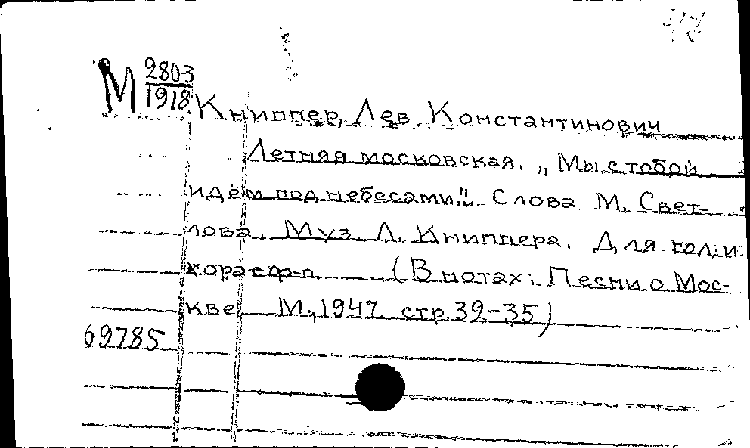 М 2803/1918 Книппер, Лев Константинович
Летняя московская. „Мы с тобой
идём под небесами". Слова М. Свет-
лова. Муз. Л. Книппера. Для гол. и
хора с ф-п. (В нотах: Песни о Мос-
кве М., 1947. стр. 32-35)
69785